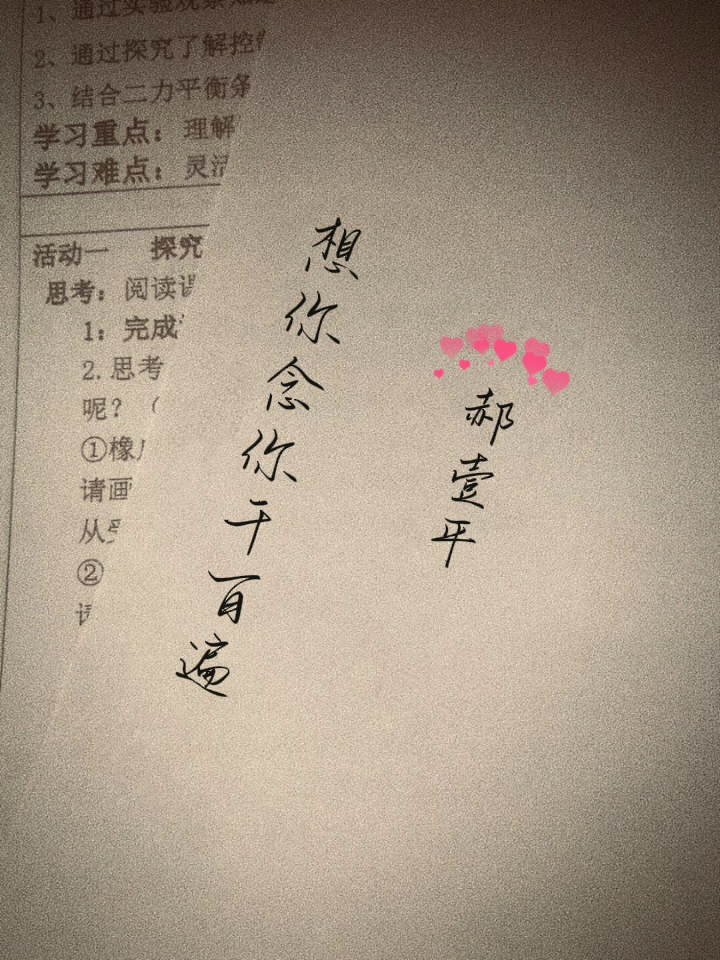 1、通过实验观察知道
2、通过探究了解控
3、结合二力平衡条
学习重点：理解
学习难点：灵活
活动一 探究
思考：阅读课
1：完成
2.思考
呢？（
①橡
请画
从受
②
想你念你千百遍
郝壹平